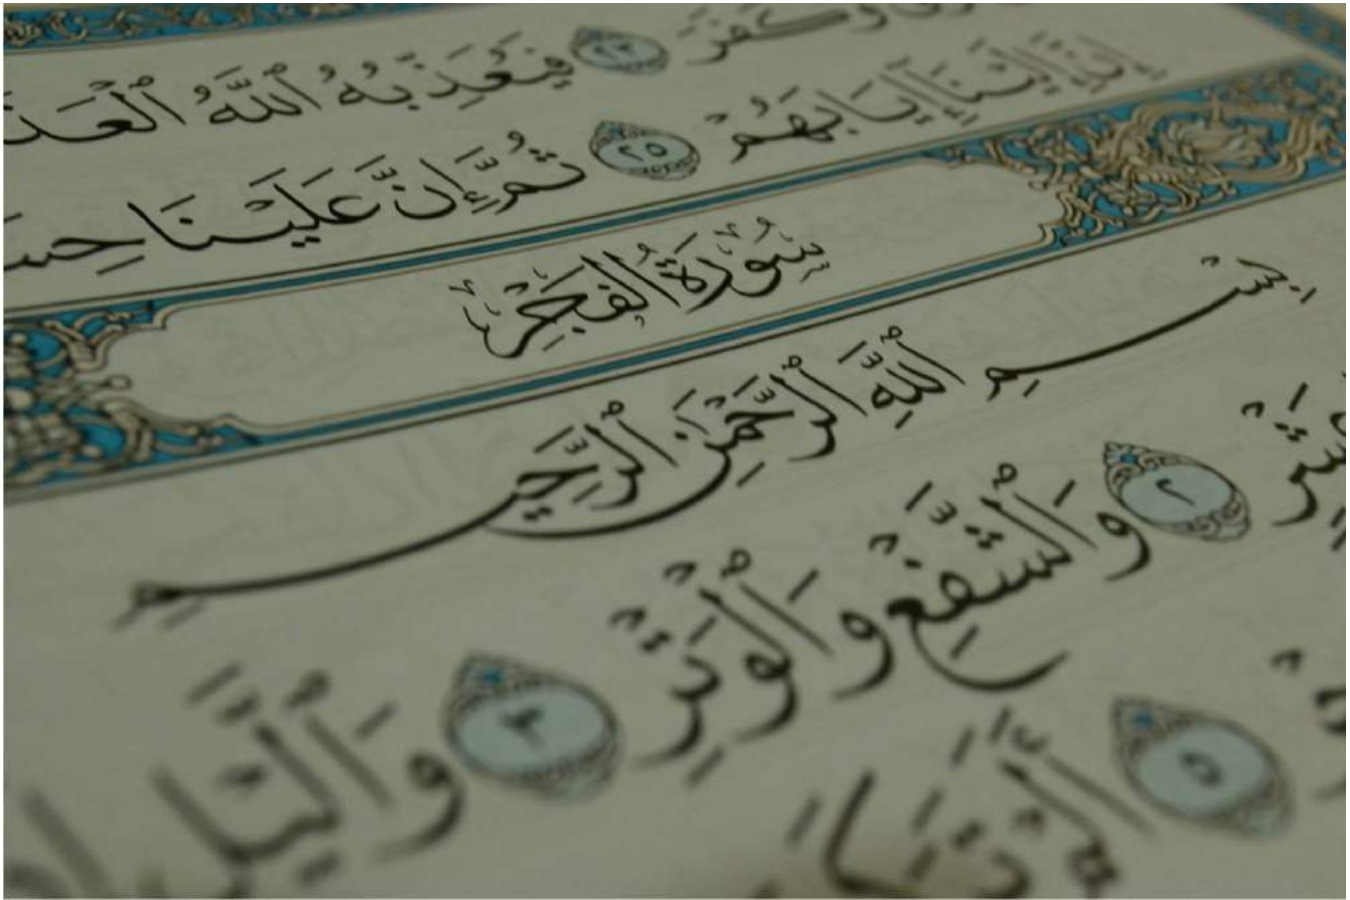 وَكَفَرَ ٢٣ فَيُعَذِّبُهُ ٱللَّهُ
إِنَّ إِلَيْنَآ إِيَابَهُمْ ٢٥ ثُمَّ إِنَّ عَلَيْنَا
سُورَةُ الفَجْرِ
بِسْمِ ٱللَّهِ ٱلرَّحْمَٰنِ ٱلرَّحِيمِ
٢ وَٱلشَّفْعِ وَٱلْوَتْرِ ٣ وَٱلَّيْلِ
٥ أَلَمْ تَرَ